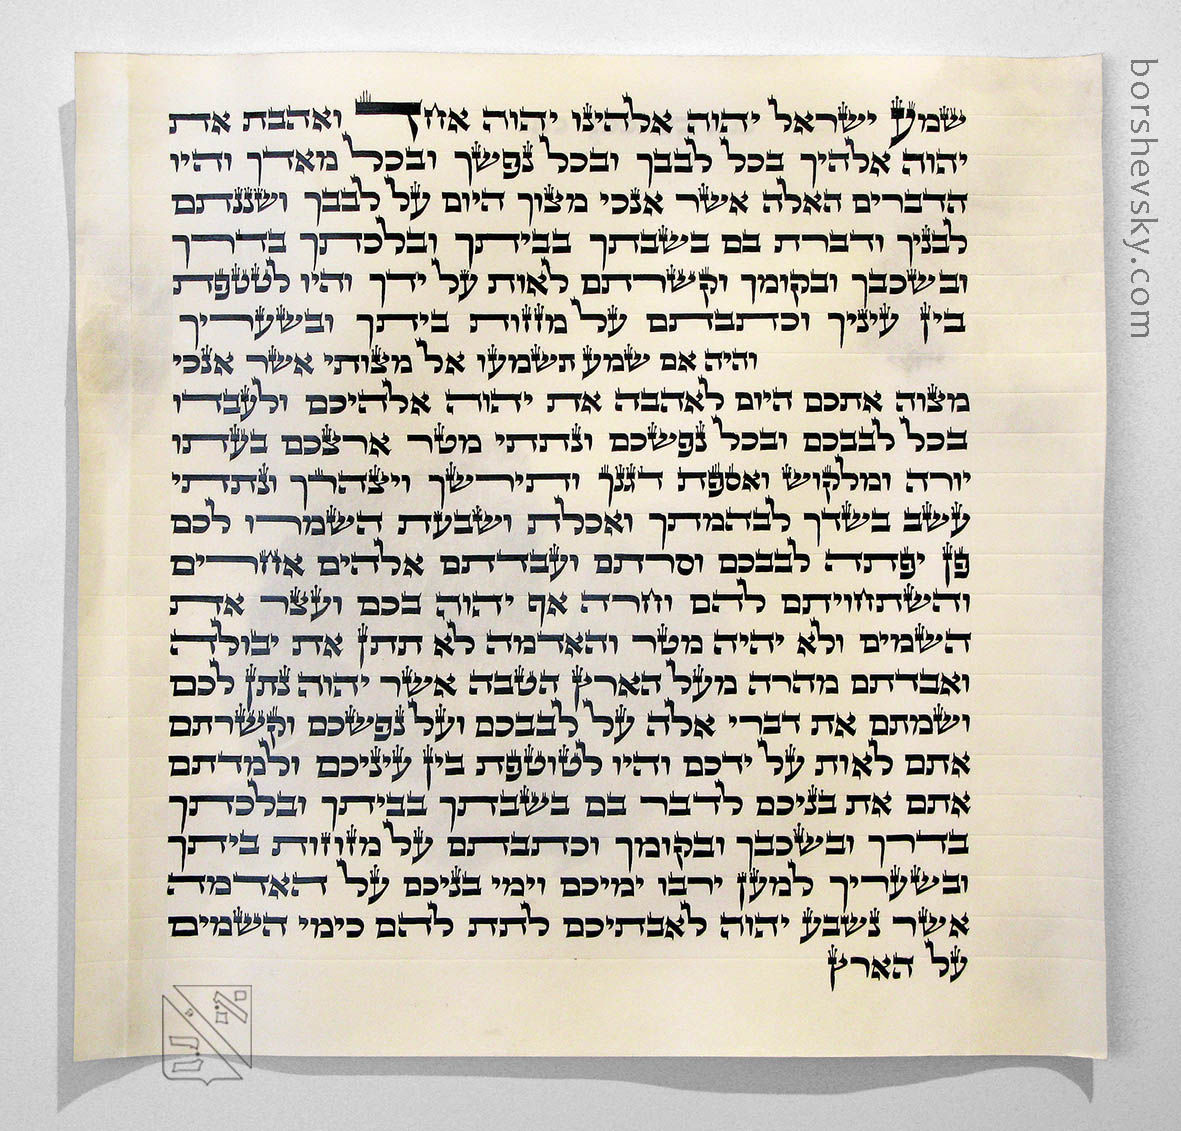 שמע ישראל יהוה אלהינו יהוה אחד ואהבת את
יהוה אלהיך בכל לבבך ובכל נפשך ובכל מאדך והיו
הדברים האלה אשר אנכי מצוך היום על לבבך ושננתם
לבניך ודברת בם בשבתך בביתך ובלכתך בדרך
ובשכבך ובקומך וקשרתם לאות על ידך והיו לטטפת
בין עיניך וכתבתם על מזזות ביתך ובשעריך
והיה אם שמע תשמעו אל מצותי אשר אנכי
מצוה אתכם היום לאהבה את יהוה אלהיכם ולעבדו
בכל לבבכם ובכל נפשכם ונתתי מטר ארצכם בעתו
יורה ומלקוש ואספת דגנך ותירשך ויצהרך ונתתי
עשב בשדך לבהמתך ואכלת ושבעת השמרו לכם
פן יפתה לבבכם וסרתם ועבדתם אלהים אחרים
והשתחויתם להם וחרה אף יהוה בכם ועצר את
השמים ולא יהיה מטר והאדמה לא תתן את יבולה
ואבדתם מהרה מעל הארץ הטבה אשר יהוה נתן לכם
ושמתם את דברי אלה על לבבכם ועל נפשכם וקשרתם
אתם לאות על ידכם והיו לטוטפת בין עיניכם ולמדתם
אתם את בניכם לדבר בם בשבתך בביתך ובלכתך
בדרך ובשכבך ובקומך וכתבתם על מזוזות ביתך
ובשעריך למען ירבו ימיכם וימי בניכם על האדמה
אשר נשבע יהוה לאבתיכם לתת להם כימי השמים
על הארץ
borshevsky.com